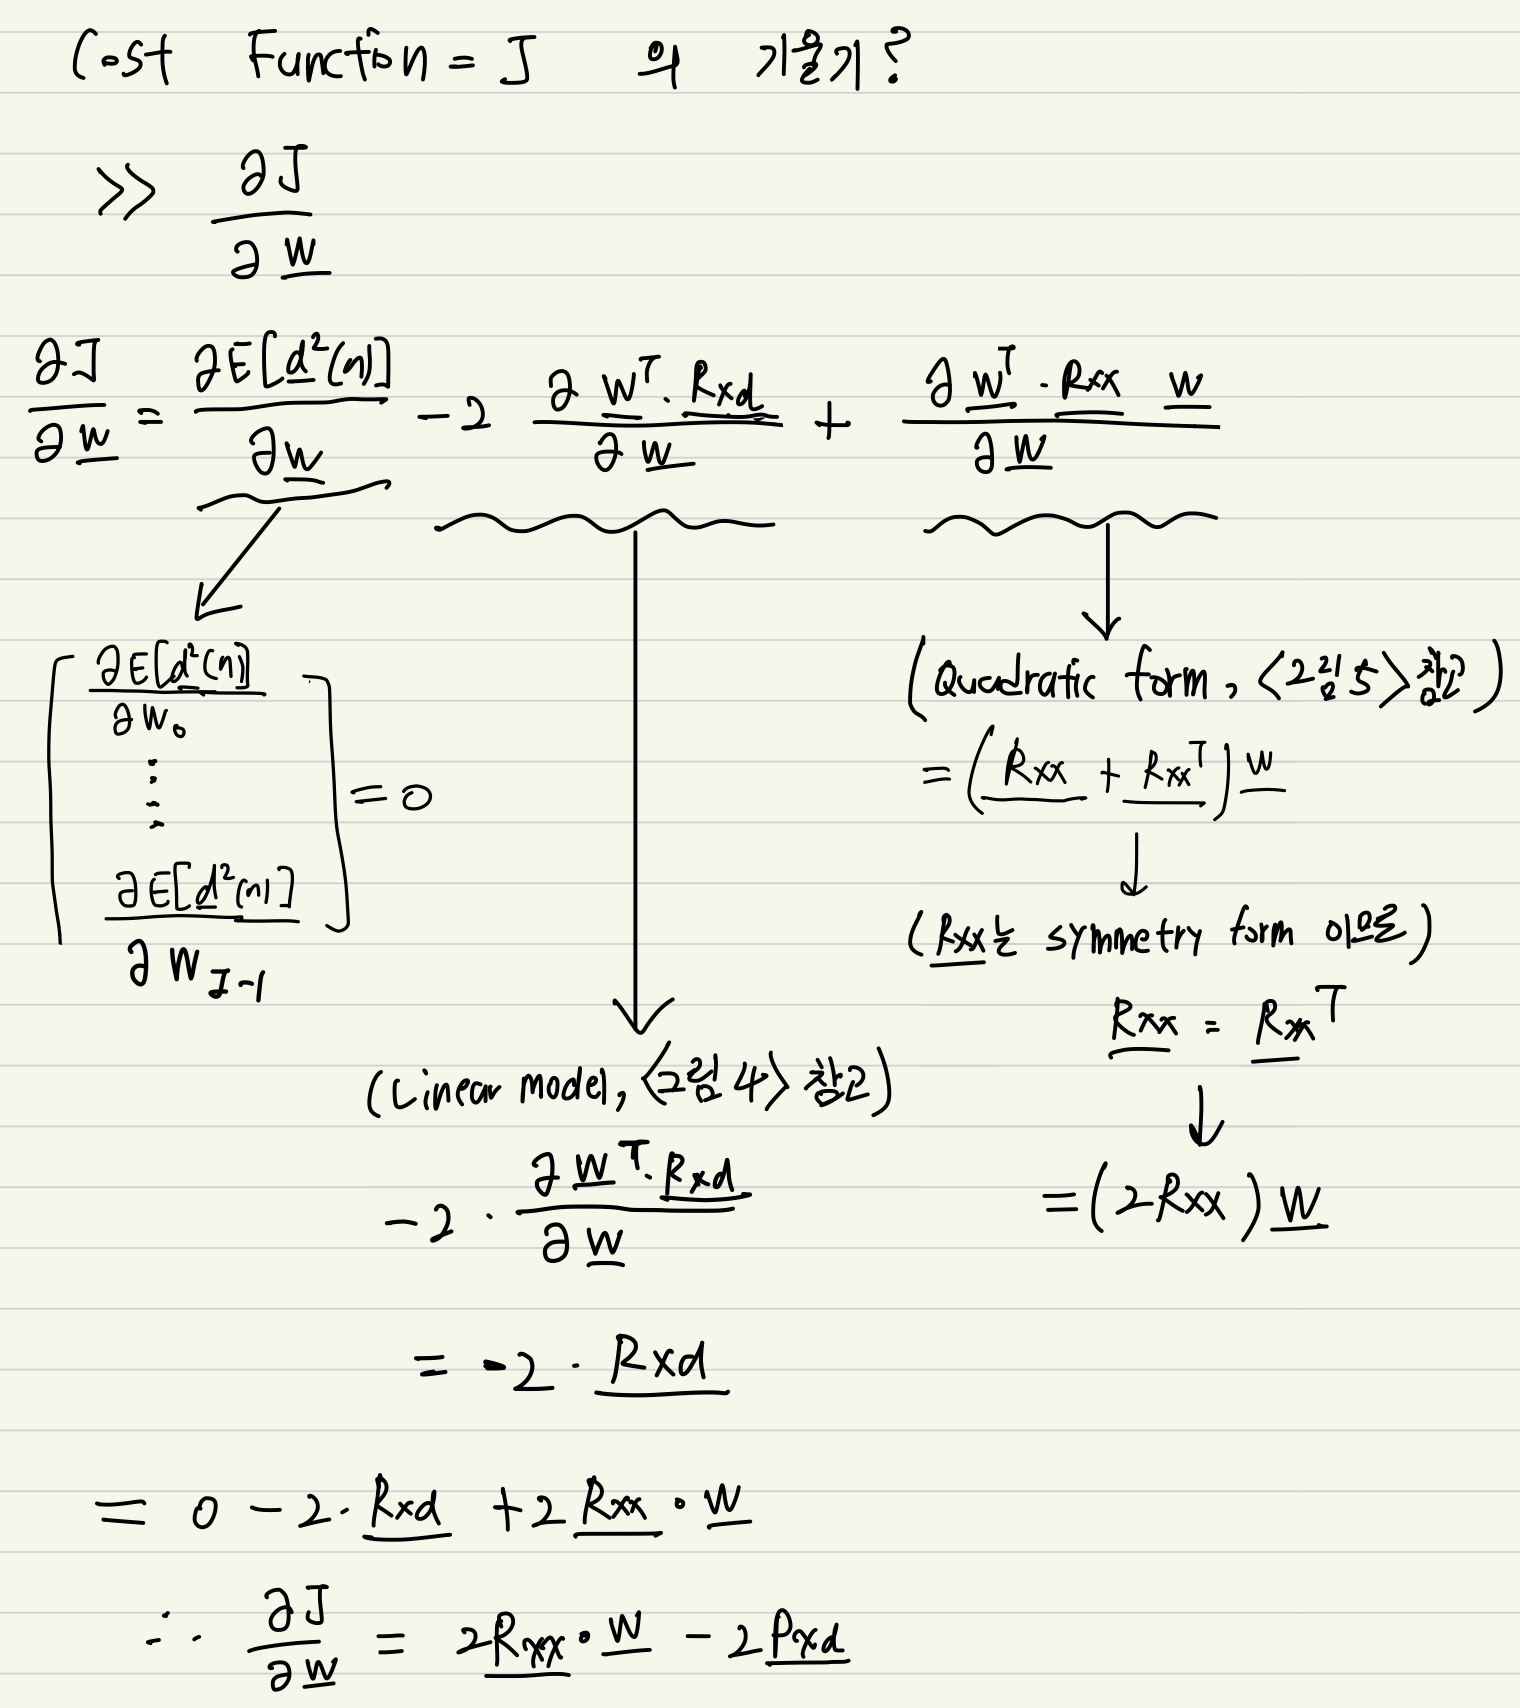 Cost Function = J 의 기울기?
>> ∂J / ∂w
∂J/∂w = ∂E[d²(n)]/∂w - 2 ∂w^T·Rxd/∂w + ∂w^T·Rxx w/∂w
[∂E[d²(n)]/∂w₀ ⋮ ∂E[d²(n)]/∂w_I-1] = 0
(Linear model, <그림 4> 참고)
-2 · ∂w^T·Rxd/∂w
= -2 · Rxd
(Quadratic form, <그림 5> 참고)
= (Rxx + Rxx^T) w
(Rxx는 symmetry form 이므로)
Rxx = Rxx^T
= (2Rxx) w
= 0 - 2·Rxd + 2Rxx·w
∴ ∂J/∂w = 2Rxx·w - 2Pxd